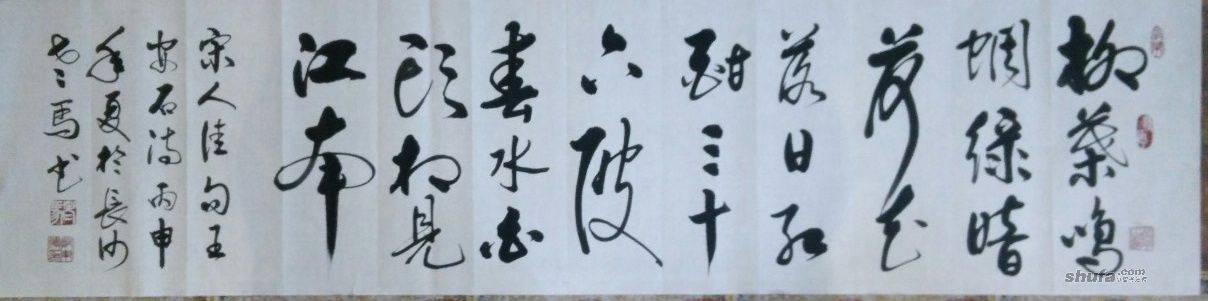 柳葉鳴
蜩绿暗
荷花
落日红
酣三十
六陂
春水白
頭相見
江南
宋人佳句王
安石诗丙申
年夏於長沙
馬书
shura.com